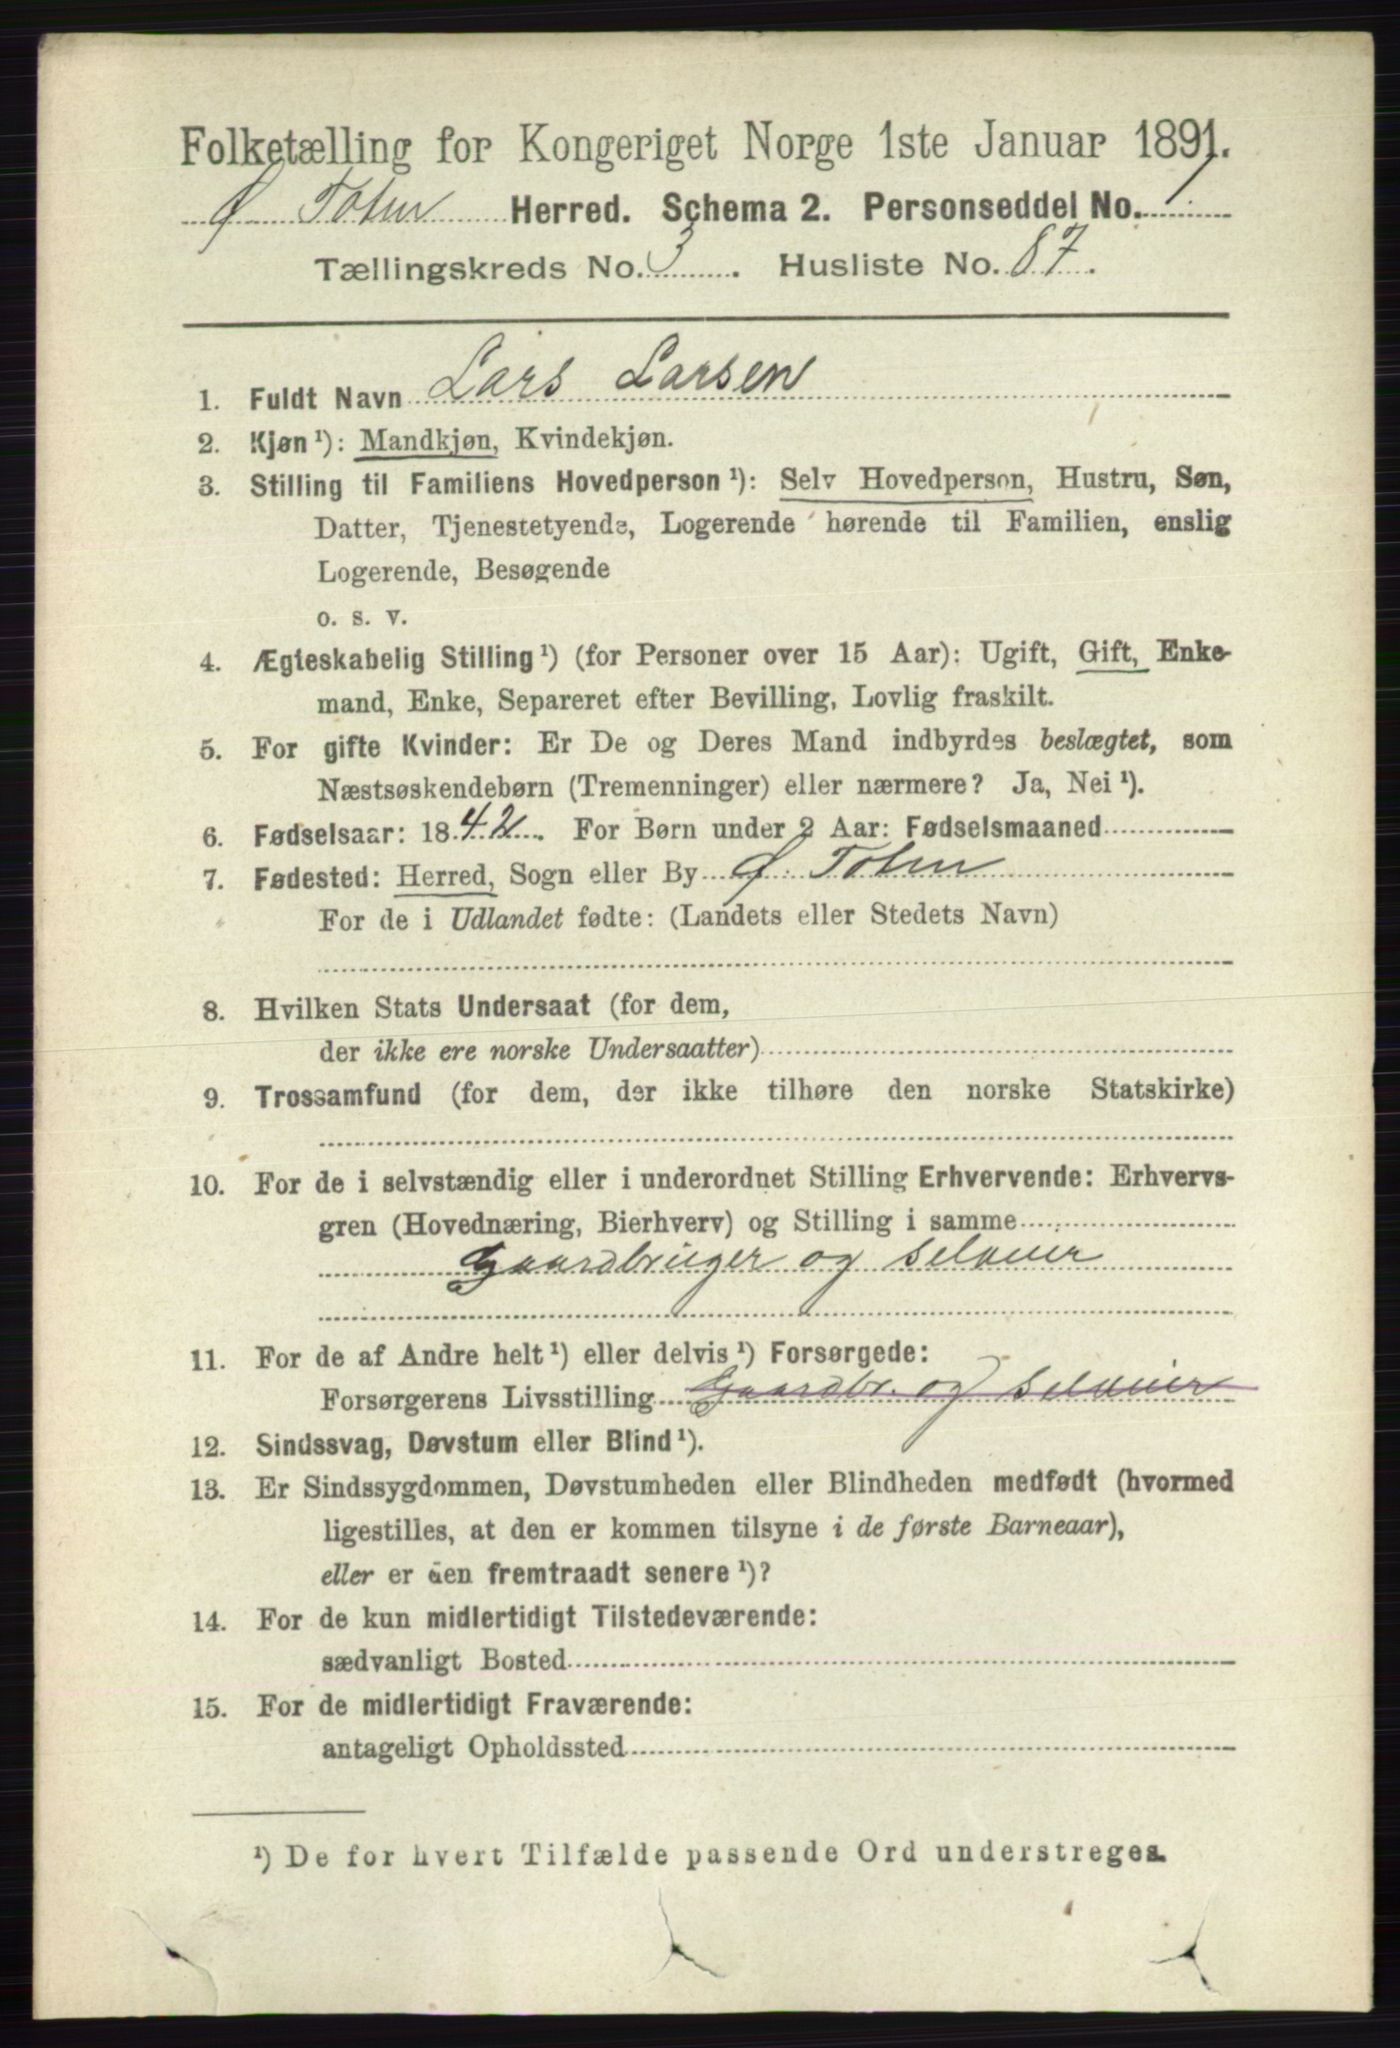 Folketælling for Kongeriget Norge 1ste Januar 1891.
Ø Toten Herred. Schema 2. Personseddel No. 1
Tællingskreds No. 3. Husliste No. 87.
1. Fuldt Navn Lars Larsen
2. Kjøn ¹): Mandkjøn, Kvindekjøn.
3. Stilling til Familiens Hovedperson ¹): Selv Hovedperson, Hustru, Søn,
Datter, Tjenestetyende, Logerende hørende til Familien, enslig
Logerende, Besøgende
o. s. v.
4. Ægteskabelig Stilling ¹) (for Personer over 15 Aar): Ugift, Gift, Enke-
mand, Enke, Separeret efter Bevilling, Lovlig fraskilt.
5. For gifte Kvinder: Er De og Deres Mand indbyrdes beslægtet, som
Næstsøskendebørn (Tremenninger) eller nærmere? Ja, Nei ¹).
6. Fødselsaar: 1842. For Børn under 2 Aar: Fødselsmaaned
7. Fødested: Herred, Sogn eller By Ø. Toten
For de i Udlandet fødte: (Landets eller Stedets Navn)
8. Hvilken Stats Undersaat (for dem,
der ikke ere norske Undersaatter)
9. Trossamfund (for dem, der ikke tilhøre den norske Statskirke)
10. For de i selvstændig eller i underordnet Stilling Erhvervende: Erhvervs-
gren (Hovednæring, Bierhverv) og Stilling i samme
Gaardbruger og Seleier
11. For de af Andre helt ¹) eller delvis ¹) Forsørgede:
Forsørgerens Livsstilling Gaardbr. og Seleier
12. Sindssvag, Døvstum eller Blind ¹).
13. Er Sindssygdommen, Døvstumheden eller Blindheden medfødt (hvormed
ligestilles, at den er kommen tilsyne i de første Barneaar),
eller er den fremtraadt senere ¹)?
14. For de kun midlertidigt Tilstedeværende:
sædvanligt Bosted
15. For de midlertidigt Fraværende:
antageligt Opholdssted
¹) De for hvert Tilfælde passende Ord understreges.